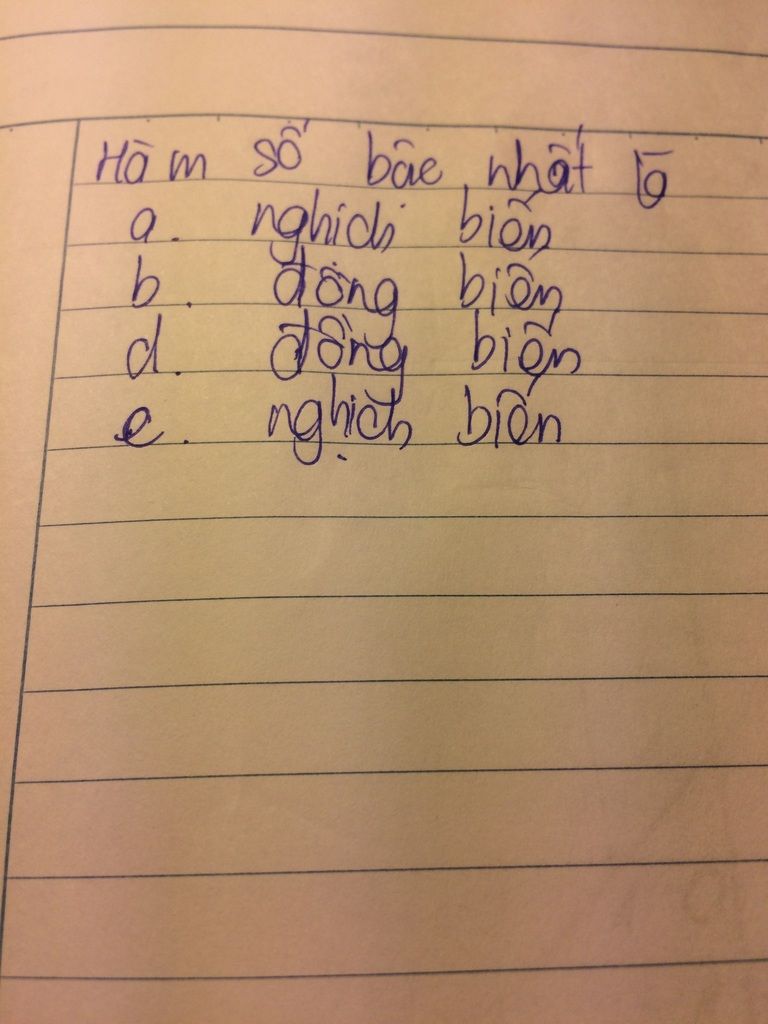 Hàm số bâc nhất là
a. nghịch biến
b. đồng biến
d. đồng biến
e. nghịch biến